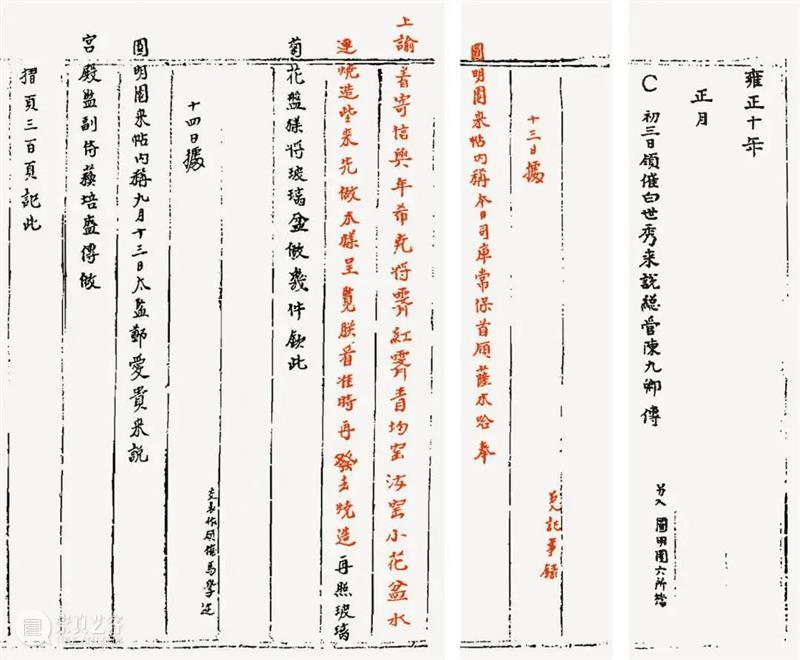 雍正十年
正月
C 初三日領催白世秀来說總管陳九卿傳
另入 圓明園六所檔
十三日據
另入記事錄
圓明園来帖内稱本日司庫常保首領薩木哈奉
上諭着寄信與年希尭將霽紅霽青均窑汝窑小花盆水
連燒造些来先做木樣呈覽朕看准時再發去燒造再照玻璃
菊花盤樣將玻璃盆做幾件欽此
十四日據
交表作領催馬學
圓明園来帖内稱九月十三日太監鄭愛貴来説
宮殿監副侍蘇培盛傳做
摺頁三百頁記此
崇真艺客